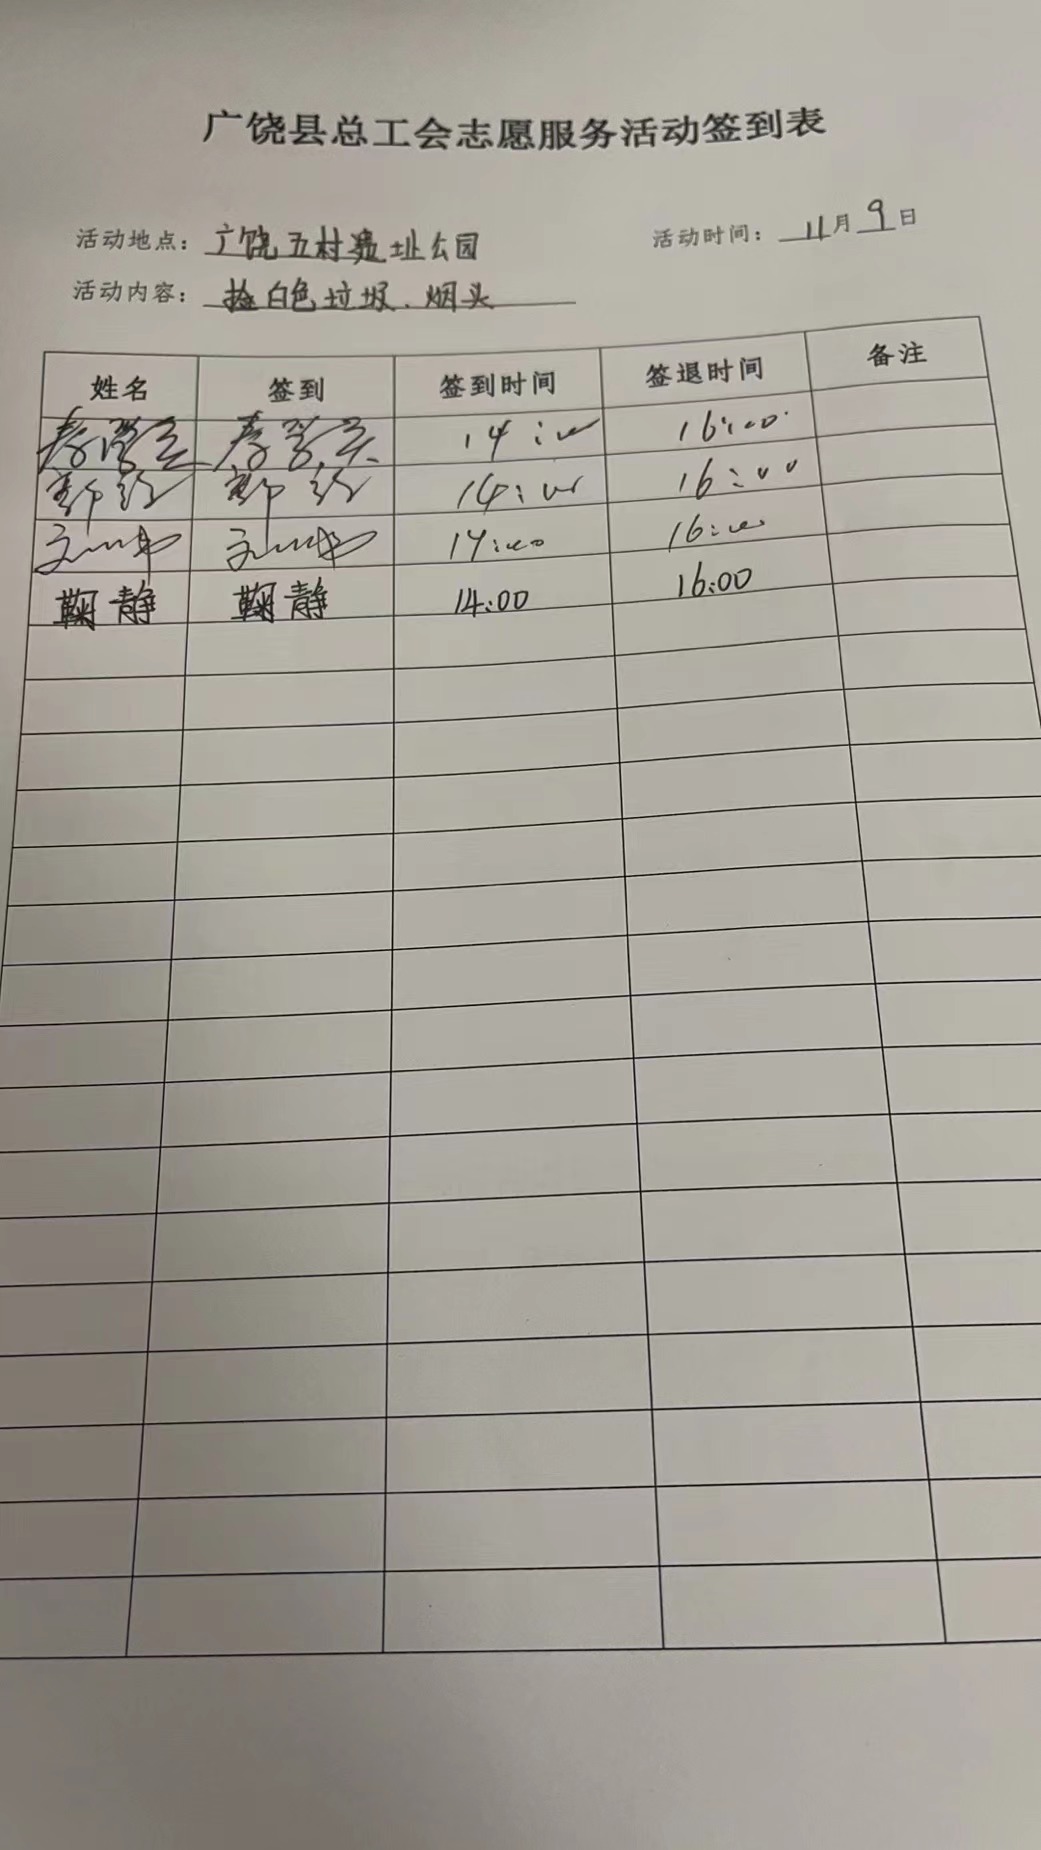 广饶县总工会志愿服务活动签到表
活动地点：广饶五村遗址公园 活动时间：11月9日
活动内容：捡白色垃圾、烟头
姓名 签到 签到时间 签退时间 备注
14:00 16:00
14:00 16:00
14:00 16:00
鞠静 鞠静 14:00 16:00